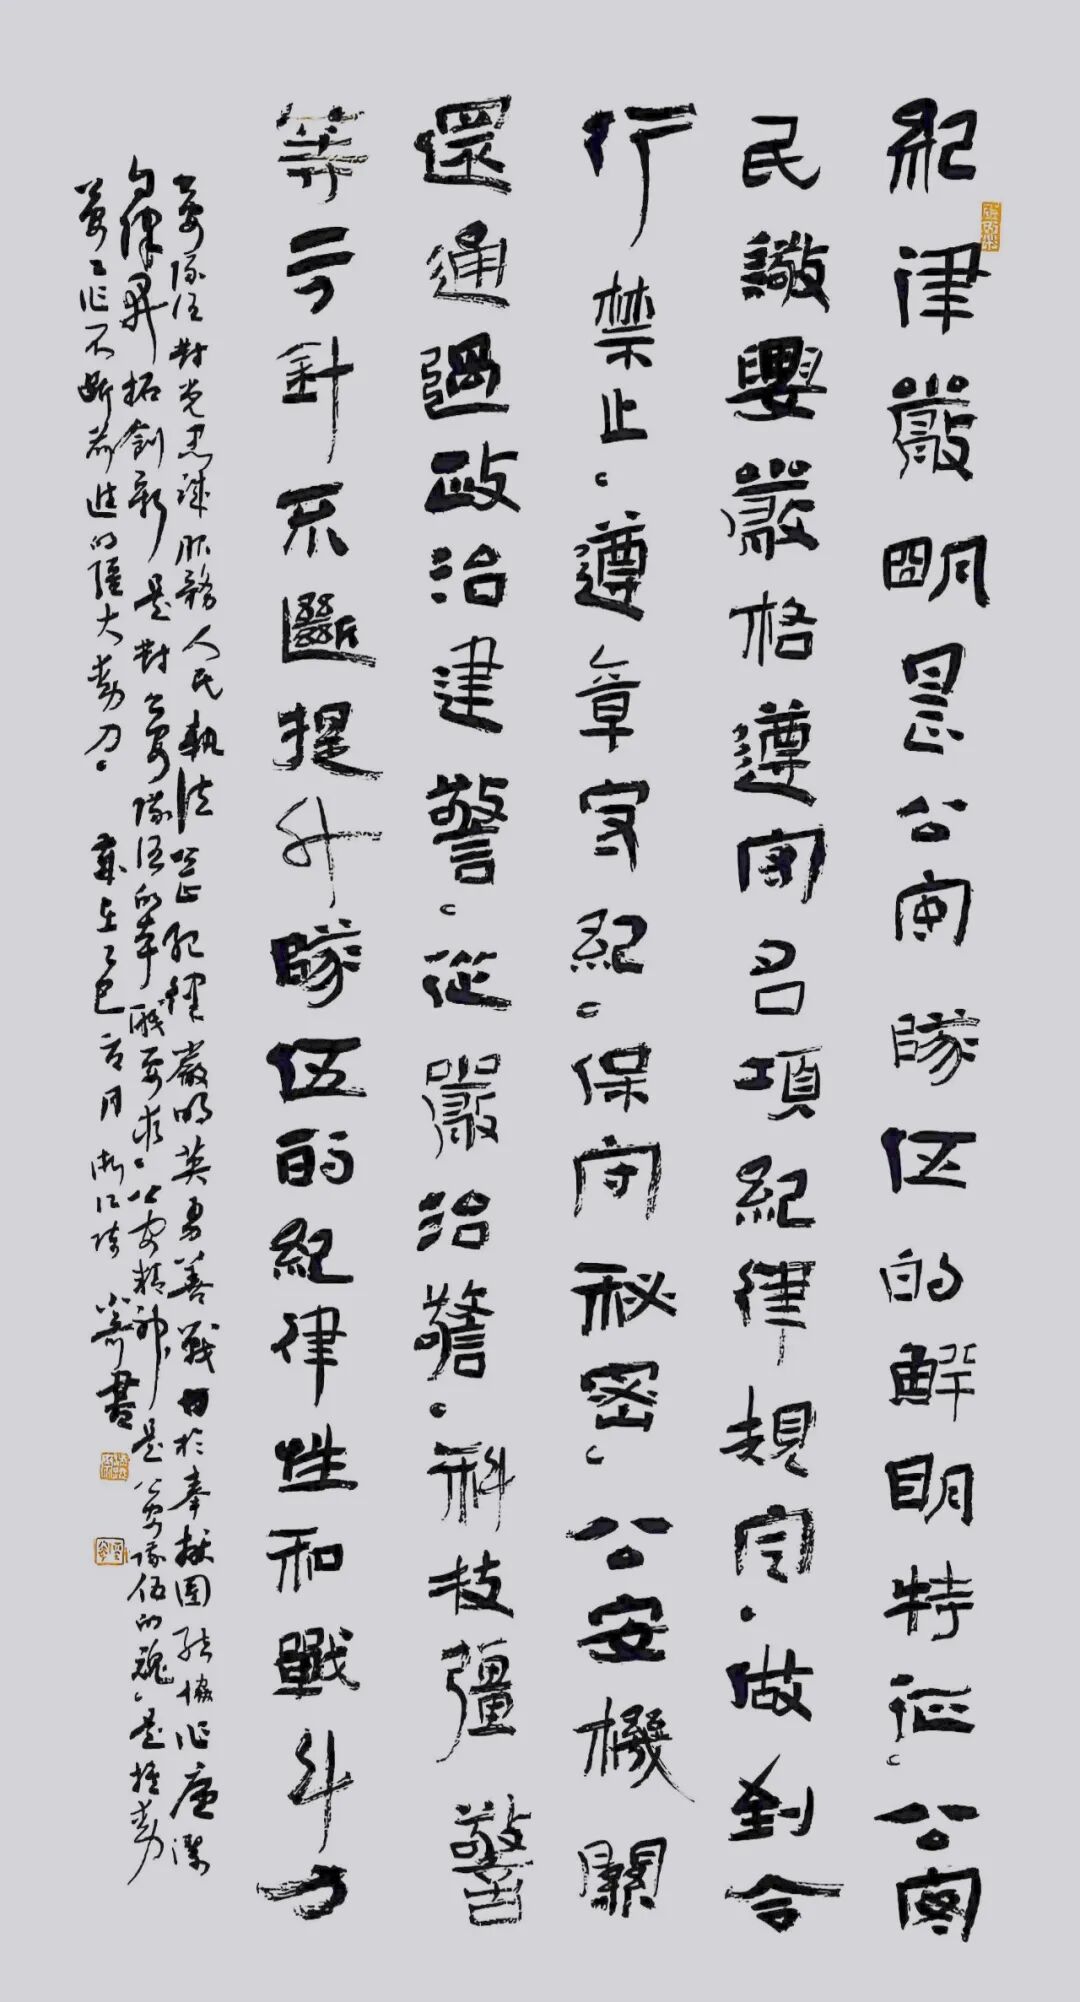 紀律嚴明是公安隊伍的鮮明特征。公安
民警要嚴格遵守各項紀律規定。做到令
行禁止。遵章守紀。保守秘密。公安機關
還通過政治建警。從嚴治警。科技彊警
等方針不斷提升隊伍的紀律性和戰斗力
公安隊伍對党忠誠服務人民執法公正紀律嚴明英勇善戰甘於奉獻團結協作廉潔
自律開拓創新是對公安隊伍的本職要求。公安精神是公安隊伍的魂。是推動
公安工作不斷前進的強大動力。歲在乙巳 月浙江 書